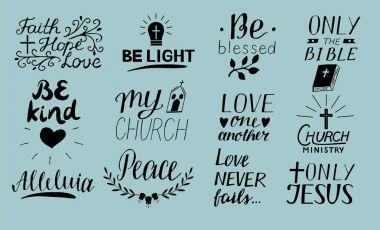 Faith
Hope
Love
BE LIGHT
Be
blessed
ONLY
THE
BIBLE
BE
kind
my
CHURCH
LOVE
one
another
CHURCH
MINISTRY
Alleluia
Peace
Love
NEVER
fails...
ONLY
JESUS